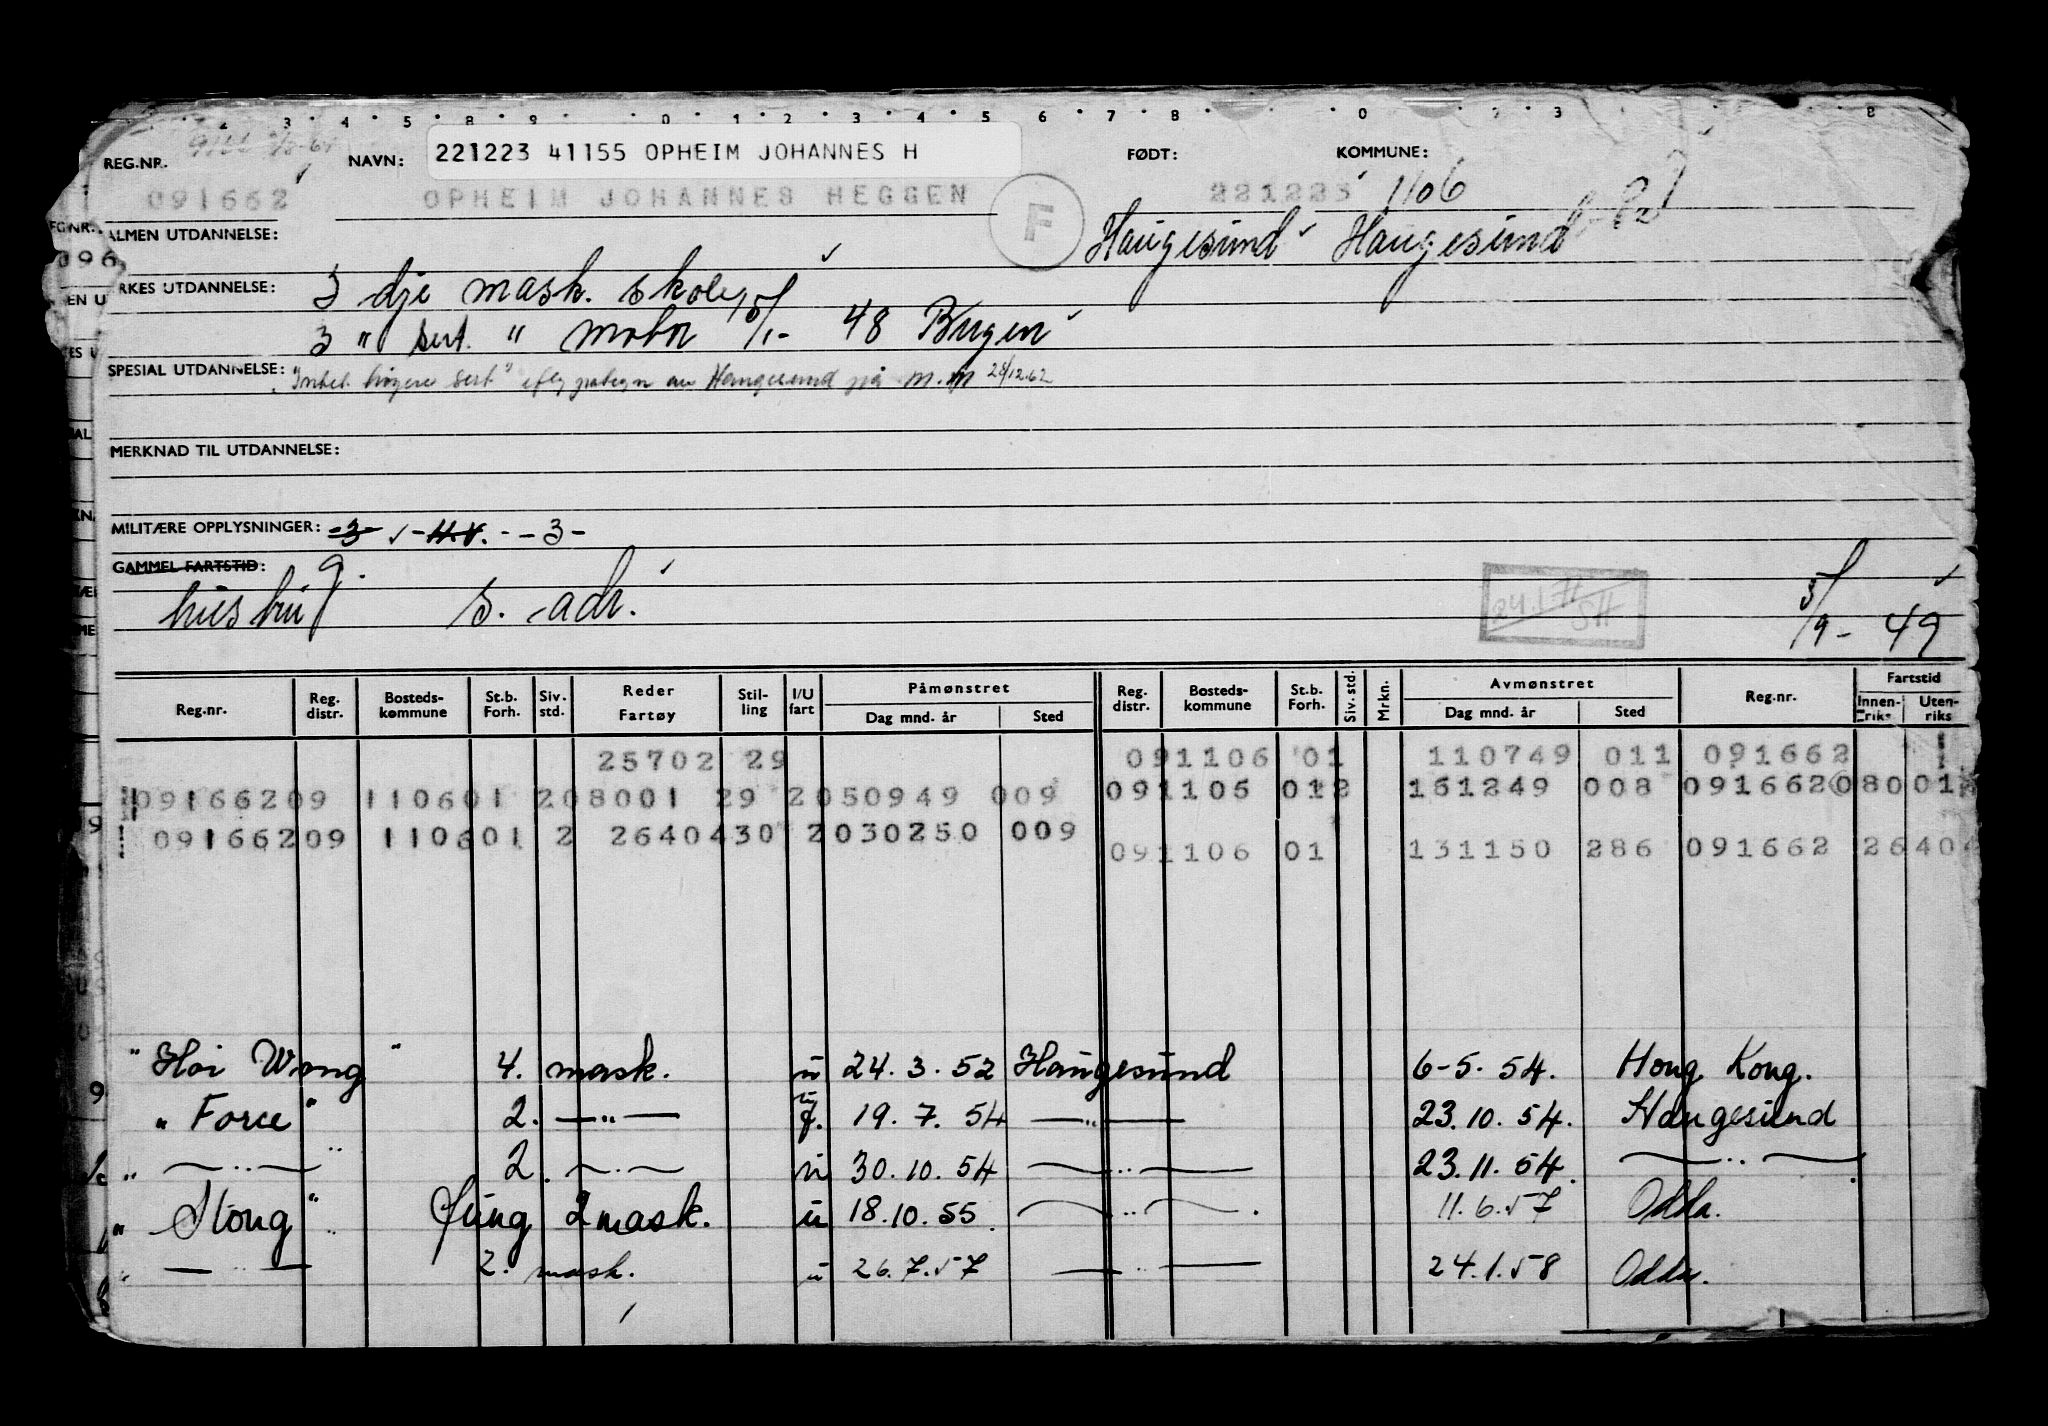 2 3 4 5 8 9 0 1 2 3 4 5 6 7 8 0 3 8
REG.NR. NAVN: 221223 41155 OPHEIM JOHANNES H FØDT: KOMMUNE:
091662 OPHEIM JOHANNES HEGGEN F 221223 1106
ALMEN UTDANNELSE: Haugesund Haugesund
RKES UTDANNELSE: 3 dje mask. skole
3 " sert. " motor 15/1- 48 Bergen
SPESIAL UTDANNELSE: Haugesund på 28/12.62
MERKNAD TIL UTDANNELSE:
MILITÆRE OPPLYSNINGER: -3- -H.V. - -3-
GAMMEL FARTSTID:
s. adr. 5/9- 49
Reg.nr. Reg. distr. Bosteds-kommune St.b. Forh. Siv. std. Reder Fartøy Stil-ling I/U fart Påmønstret Dag mnd. år Sted Reg. distr. Bosteds-kommune St.b. Forh. Siv. std. Mrkn. Avmønstret Dag mnd. år Sted Reg.nr. Fartstid Innen-riks Uten-riks
25702 29 091106 01 110749 011 091662
09166209 110601 208001 29 2050949 009 091106 012 161249 008 091662 080 01
09166209 110601 2 2640430 2030250 009
091106 01 131150 286 091662 26404
"Hoi Wong" 4. mask. u 24.3.52 Haugesund 6-5.54. Hong Kong.
"Force" 2. —"— 19.7.54 —"— 23.10.54. Haugesund
" —"— 2. —"— 30.10.54 —"— 23.11.54. —"—
"Stong" fung 2 mask. u 18.10.55 —"— 11.6.57 Odda.
" —"— 2. mask. u 26.7.57 —"— 24.1.58 Odda.